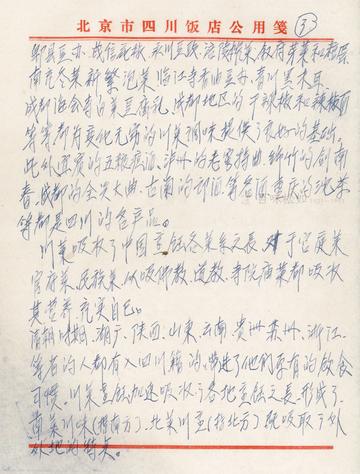 北京市四川饭店公用笺
③
郫县豆办、成信豆豉、永川豆豉、涪陵榨菜、叙府芽菜和
南充冬菜新繁泡菜临江寺香油豆办、青川黑木耳、
成都治会寺的白菜豆腐乳、成都地区的干辣椒和辣椒面
等等都为变化无穷的川菜调味提供了很好的基础。
此外宜宾的五粮液酒、泸州的老窖特曲绵竹的剑南
春、成都的全兴大曲、古蔺的郎酒等名酒重庆的沱茶
等都是四川的名产品。
川菜吸收了中国烹饪各菜系之长,对于宫廷菜
官府菜、民族菜,以及佛教、道教、寺院庙菜都吸收
其营养,充实自己。
清朝时期、湖广、陕西、山东、云南、贵州苏州、浙江、
等省的人都有入四川籍的、带进了他们原有的饮食
习惯,川菜烹饪加速吸收了各地烹饪之长,形成了
南菜川味(指南方)、北菜川烹(指北方)既吸取了外
外地的特点。